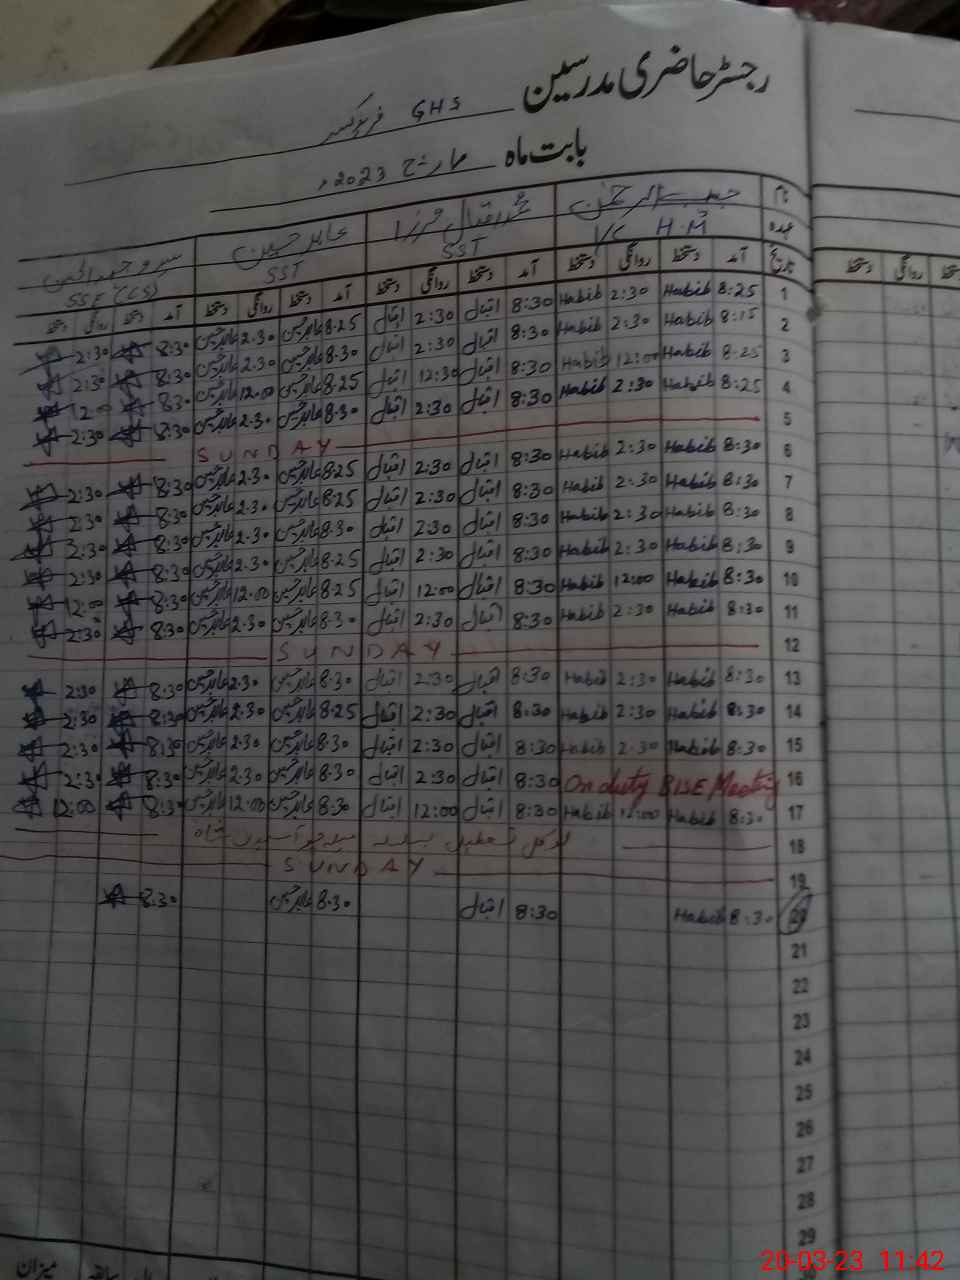 رجسٹر حاضری مدرسین GHS
بابت ماہ مارچ 2023ء
نام حبیب الرحمٰن محمد اقبال مرزا عابد حسین سید وحید الحسن
عہدہ I/C H.M SST SST SSE (CS)
تاریخ آمد دستخط روانگی دستخط آمد دستخط روانگی دستخط آمد دستخط روانگی دستخط آمد دستخط روانگی دستخط
1 8:25 Habib 2:30 Habib 8:30 اقبال 2:30 اقبال 8.25 عابد حسین 2.30 عابد حسین 8:30 2:30
2 8:15 Habib 2:30 Habib 8:30 اقبال 2:30 اقبال 8.30 عابد حسین 2.30 عابد حسین 8:30 2:30
3 8:25 Habib 12:00 Habib 8:30 اقبال 12:30 اقبال 8.25 عابد حسین 12.00 عابد حسین 8:30 12:00
4 8:25 Habib 2:30 Habib 8:30 اقبال 2:30 اقبال 8.30 عابد حسین 2.30 عابد حسین 8:30 2:30
5 SUNDAY
6 8:30 Habib 2:30 Habib 8:30 اقبال 2:30 اقبال 8.25 عابد حسین 2.30 عابد حسین 8:30 2:30
7 8:30 Habib 2:30 Habib 8:30 اقبال 2:30 اقبال 8.25 عابد حسین 2.30 عابد حسین 8:30 2:30
8 8:30 Habib 2:30 Habib 8:30 اقبال 2:30 اقبال 8.30 عابد حسین 2.30 عابد حسین 8:30 2:30
9 8:30 Habib 2:30 Habib 8:30 اقبال 2:30 اقبال 8.25 عابد حسین 2.30 عابد حسین 8:30 2:30
10 8:30 Habib 12:00 Habib 8:30 اقبال 12:00 اقبال 8.25 عابد حسین 12.00 عابد حسین 8:30 12:00
11 8:30 Habib 2:30 Habib 8:30 اقبال 2:30 اقبال 8.30 عابد حسین 2.30 عابد حسین 8:30 2:30
12 SUNDAY
13 8:30 Habib 2:30 Habib 8:30 اقبال 2:30 اقبال 8.30 عابد حسین 2.30 عابد حسین 8:30 2:30
14 8:30 Habib 2:30 Habib 8:30 اقبال 2:30 اقبال 8.25 عابد حسین 2.30 عابد حسین 8:30 2:30
15 8:30 Habib 2:30 Habib 8:30 اقبال 2:30 اقبال 8.30 عابد حسین 2.30 عابد حسین 8:30 2:30
16 On duty BISE Meeting 8:30 اقبال 2:30 اقبال 8.30 عابد حسین 2.30 عابد حسین 8:30 2:30
17 8:30 Habib 12:00 Habib 8:30 اقبال 12:00 اقبال 8.30 عابد حسین 12.00 عابد حسین 8:30 12:00
18 لوکل تعطیل بسلسلہ میلہ شاہ
19 SUNDAY
20 8:30 Habib 8:30 اقبال 8.30 عابد حسین 8.30
21
22
23
24
25
26
27
28
29
میزان
دستخط روانگی
20-03-23 11:42